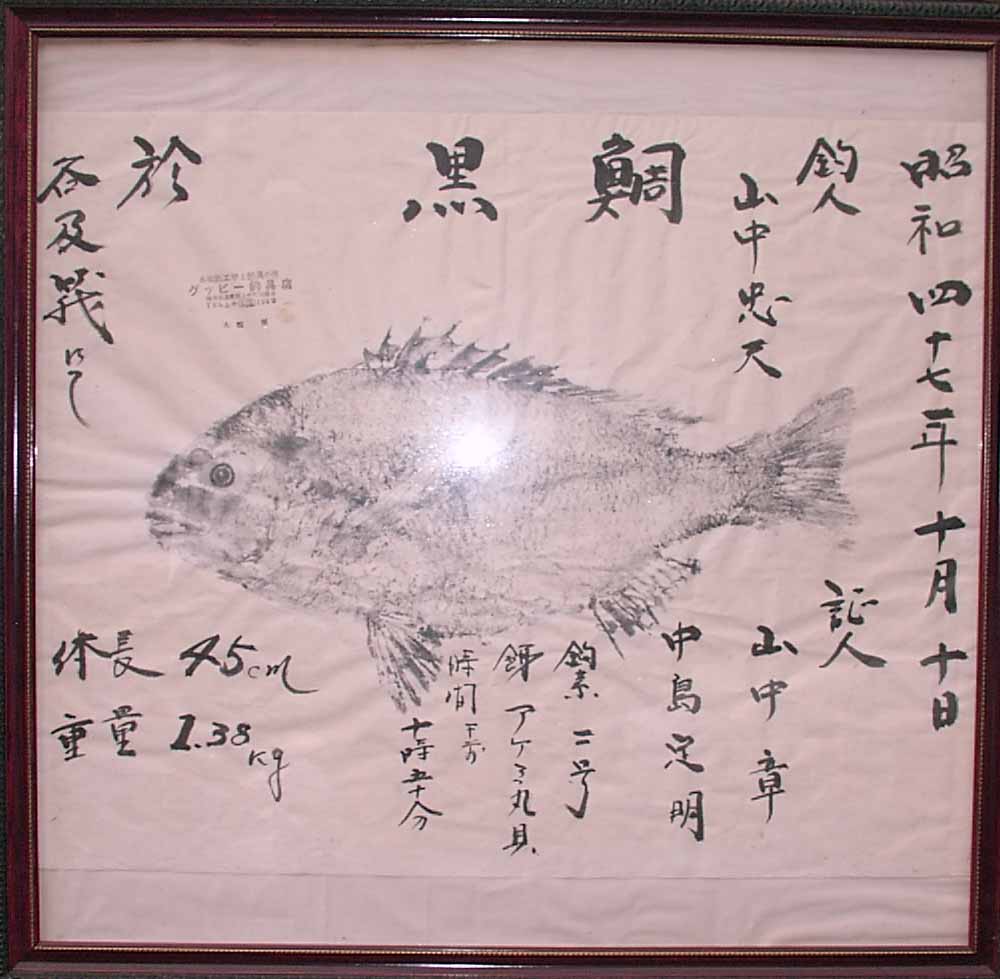 昭和四十七年十月十日
釣人
山中忠天
証人
山中章
中島定明
鯛
黒
釣素 二号
餌 アケミ丸貝
時間 午前
十時五十分
於
にて
グッピー釣具店
体長 45cm
重量 1.38kg